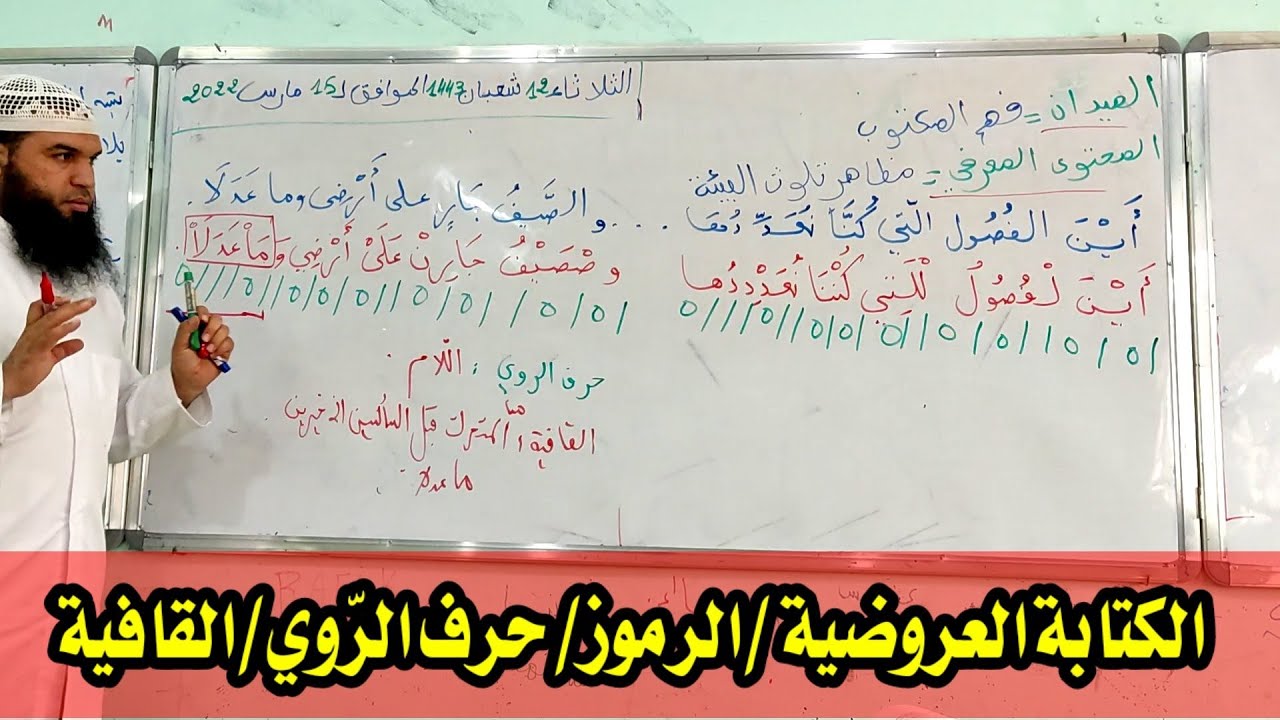 الثلاثاء 12 شعبان 1443 الموافق لـ 15 مارس 2022
الميدان = فهم المكتوب
المحتوى المعرفي = مظاهر تلوث البيئة
أَيْنَ الفُصُول الّتي كُنَّا نُعَدِّدُهَا . . . . والصَّيفُ جَارٍ على أَرْضِي وما عَدَلَا .
أَيْنَ لْفُصُولُ لْلَتِي كُنْنَا نُعَدْدِدُهَا وصْصَيْفُ جَارِنْ عَلَىْ أَرْضِي وَمَاْ عَدَلَاْ .
/0/0//0/0//0/0/0//0///0 /0/0/ /0/0//0/0/0//0///0
حرف الروي : اللّام .
القافية : المتحرك قبل الساكنين الأخيرين .
ما عدلا
الكتابة العروضية /الرموز/ حرف الرّوي/القافية